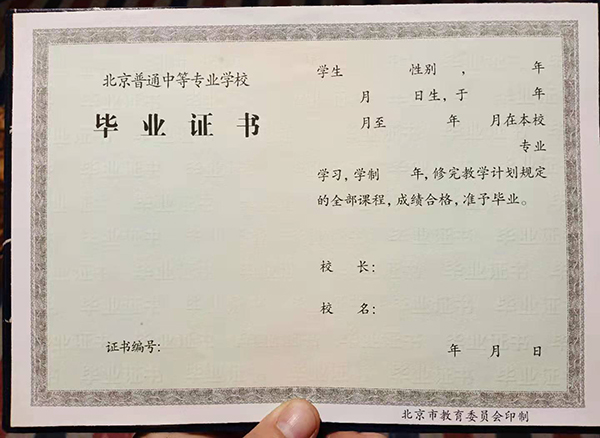 北京普通中等专业学校
毕业证书
证书编号:
学生 性别 , 年
月 日生,于 年
月至 年 月在本校
专业
学习,学制 年,修完教学计划规定
的全部课程,成绩合格,准予毕业。
校 长:
校 名:
年 月 日
北京市教育委员会印制